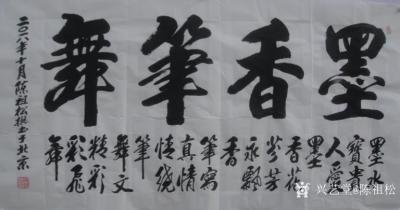 墨香筆舞
墨水
寶貴
人愛
墨
香花
芬芳
永飄
香
筆寫
真情
情繞
筆
舞文
精彩
彩飛
舞
二〇一八年十月陳祖松撰書于北京
兴艺堂@陈祖松